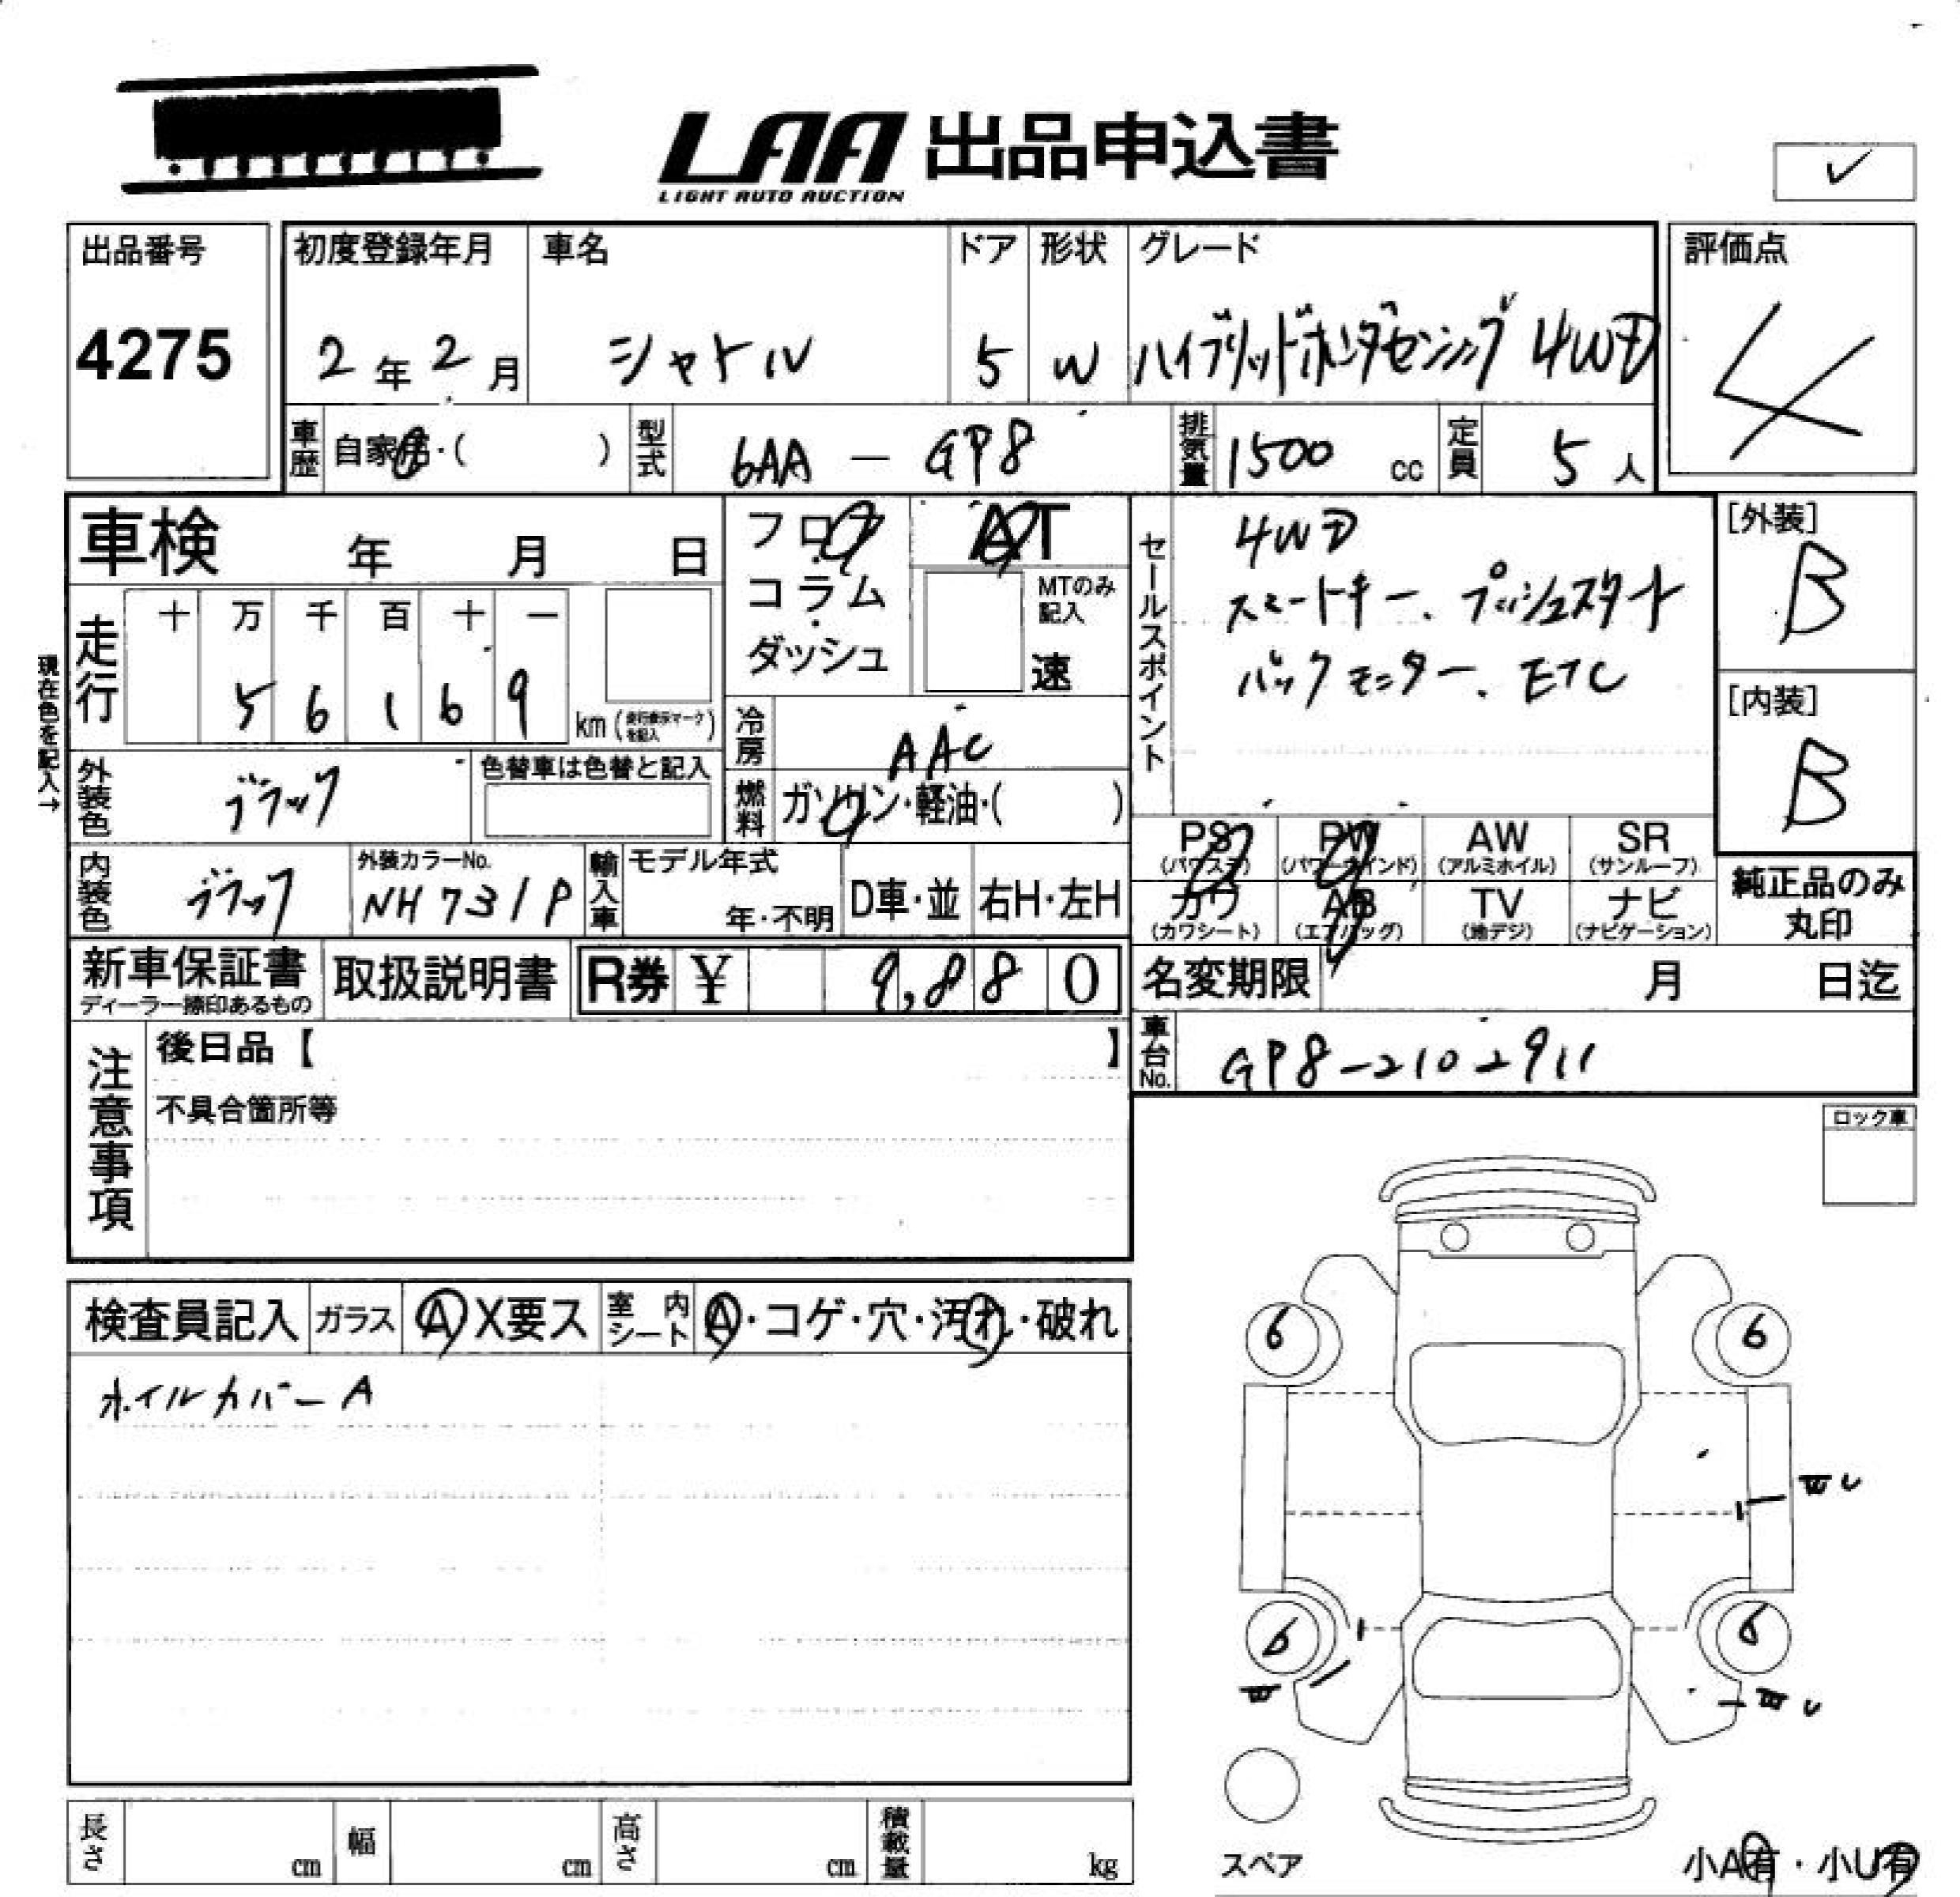 LAA 出品申込書
LIGHT AUTO AUCTION
✓
出品番号
4275
初度登録年月
2年2月
車名
シャトル
ドア
5
形状
W
グレード
ハイブリッドホンダセンシング 4WD
評価点
4
車歴
自家用・( )
型式
6AA - GP8
排気量
1500 cc
定員
5人
車検 年 月 日
フロア・コラム・ダッシュ
AT
MTのみ記入
速
セールスポイント
4WD
スマートキー、プッシュスタート
バックモニター、ETC
[外装]
B
[内装]
B
現在色を記入→
走行
十 万 千 百 十 一
5 6 1 6 9
km (走行表示マークを記入)
冷房
AAC
燃料
ガソリン・軽油・( )
外装色
ブラック
色替車は色替と記入
内装色
ブラック
外装カラーNo.
NH731P
輸入車
モデル年式
年・不明
D車・並
右H・左H
PS (パワステ)
PW (パワーウインド)
AW (アルミホイル)
SR (サンルーフ)
カワ (カワシート)
AB (エアバッグ)
TV (地デジ)
ナビ (ナビゲーション)
純正品のみ丸印
新車保証書
ディーラー捺印あるもの
取扱説明書
R券 ¥ 9,880
名変期限 月 日迄
車台No.
GP8-2102911
注意事項
後日品【 】
不具合箇所等
ロック車
検査員記入
ガラス
A X要ス
室内シート
A・コゲ・穴・汚れ・破れ
ホイルカバーA
6
6
U
6
6
U
スペア
小A有・小U有
長さ cm
幅 cm
高さ cm
積載量 kg